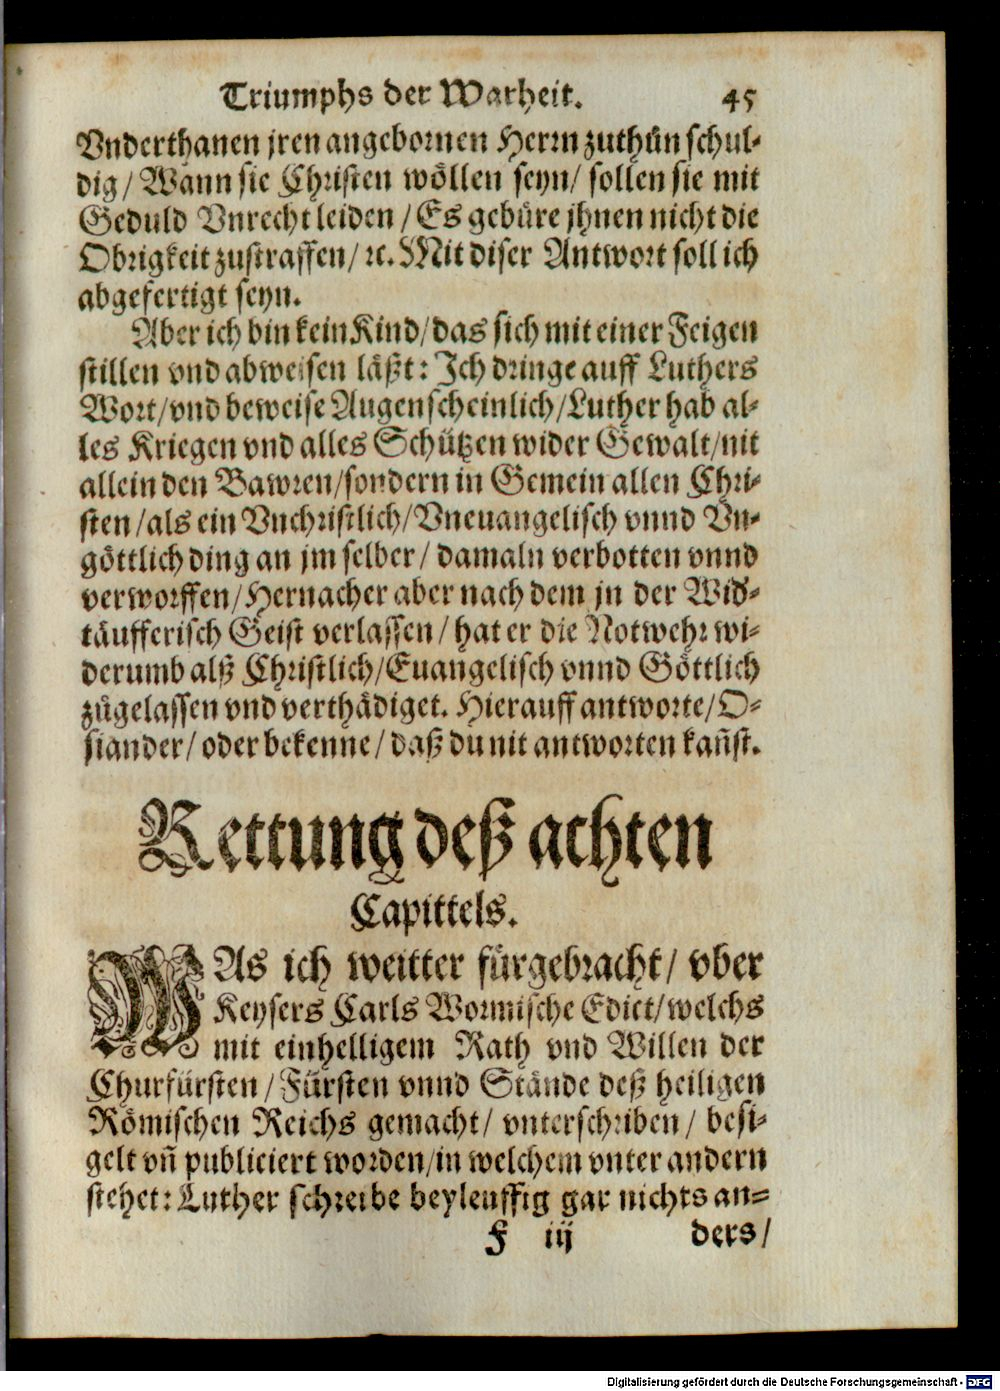 Triumphs der Warheit. 45
Vnderthanen jren angebornen Herrn zuthůn schul-
dig / Wann sie Christen wöllen seyn / sollen sie mit
Geduld Vnrecht leiden / Es gebüre jhnen nicht die
Obrigkeit zustraffen / ꝛc. Mit diser Antwort soll ich
abgefertigt seyn.
Aber ich bin kein Kind / das sich mit einer Feigen
stillen vnd abweisen läßt: Ich dringe auff Luthers
Wort / vnd beweise Augenscheinlich / Luther hab al-
les Kriegen vnd alles Schützen wider Gewalt / nit
allein den Bawren / sondern in Gemein allen Chri-
sten / als ein Vnchristlich / Vneuangelisch vnnd Vn-
göttlich ding an jm selber / damaln verbotten vnnd
verworffen / Hernacher aber nach dem jn der Wid-
täufferisch Geist verlassen / hat er die Notwehr wi-
derumb alß Christlich / Euangelisch vnnd Göttlich
zůgelassen vnd verthädiget. Hierauff antworte / O-
siander / oder bekenne / daß du nit antworten kañst.
Rettung deß achten
Capittels.
WAs ich weitter fürgebracht / vber
Keysers Carls Wormische Edict / welchs
mit einhelligem Rath vnd Willen der
Churfürsten / Fürsten vnnd Stände deß heiligen
Römischen Reichs gemacht / vnterschriben / besi-
gelt vñ publiciert worden / in welchem vnter andern
stehet: Luther schreibe beyleuffig gar nichts an-
F iij ders /
Digitalisierung gefördert durch die Deutsche Forschungsgemeinschaft - DFG